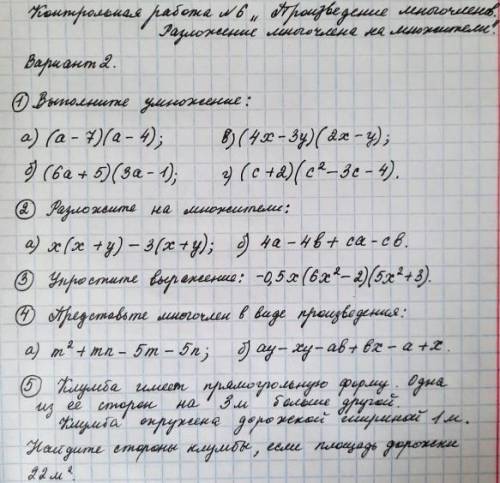 Контрольная работа №6 „ Произведение многочленов.
Разложение многочлена на множители."
Вариант 2.
① Выполните умножение:
а) (a-7)(a-4); в) (4x-3y)(2x-y);
б) (6a+5)(3a-1); г) (c+2)(c²-3c-4).
② Разложите на множители:
а) x(x+y)-3(x+y); б) 4a-4b+ca-cb.
③ Упростите выражение: -0,5x(6x²-2)(5x²+3).
④ Представьте многочлен в виде произведения:
а) m²+mn-5m-5n; б) ay-xy-ab+bx-a+x.
⑤ Клумба имеет прямоугольную форму. Одна
из её сторон на 3м больше другой.
Клумба окружена дорожкой шириной 1м.
Найдите стороны клумбы, если площадь дорожки
22м².